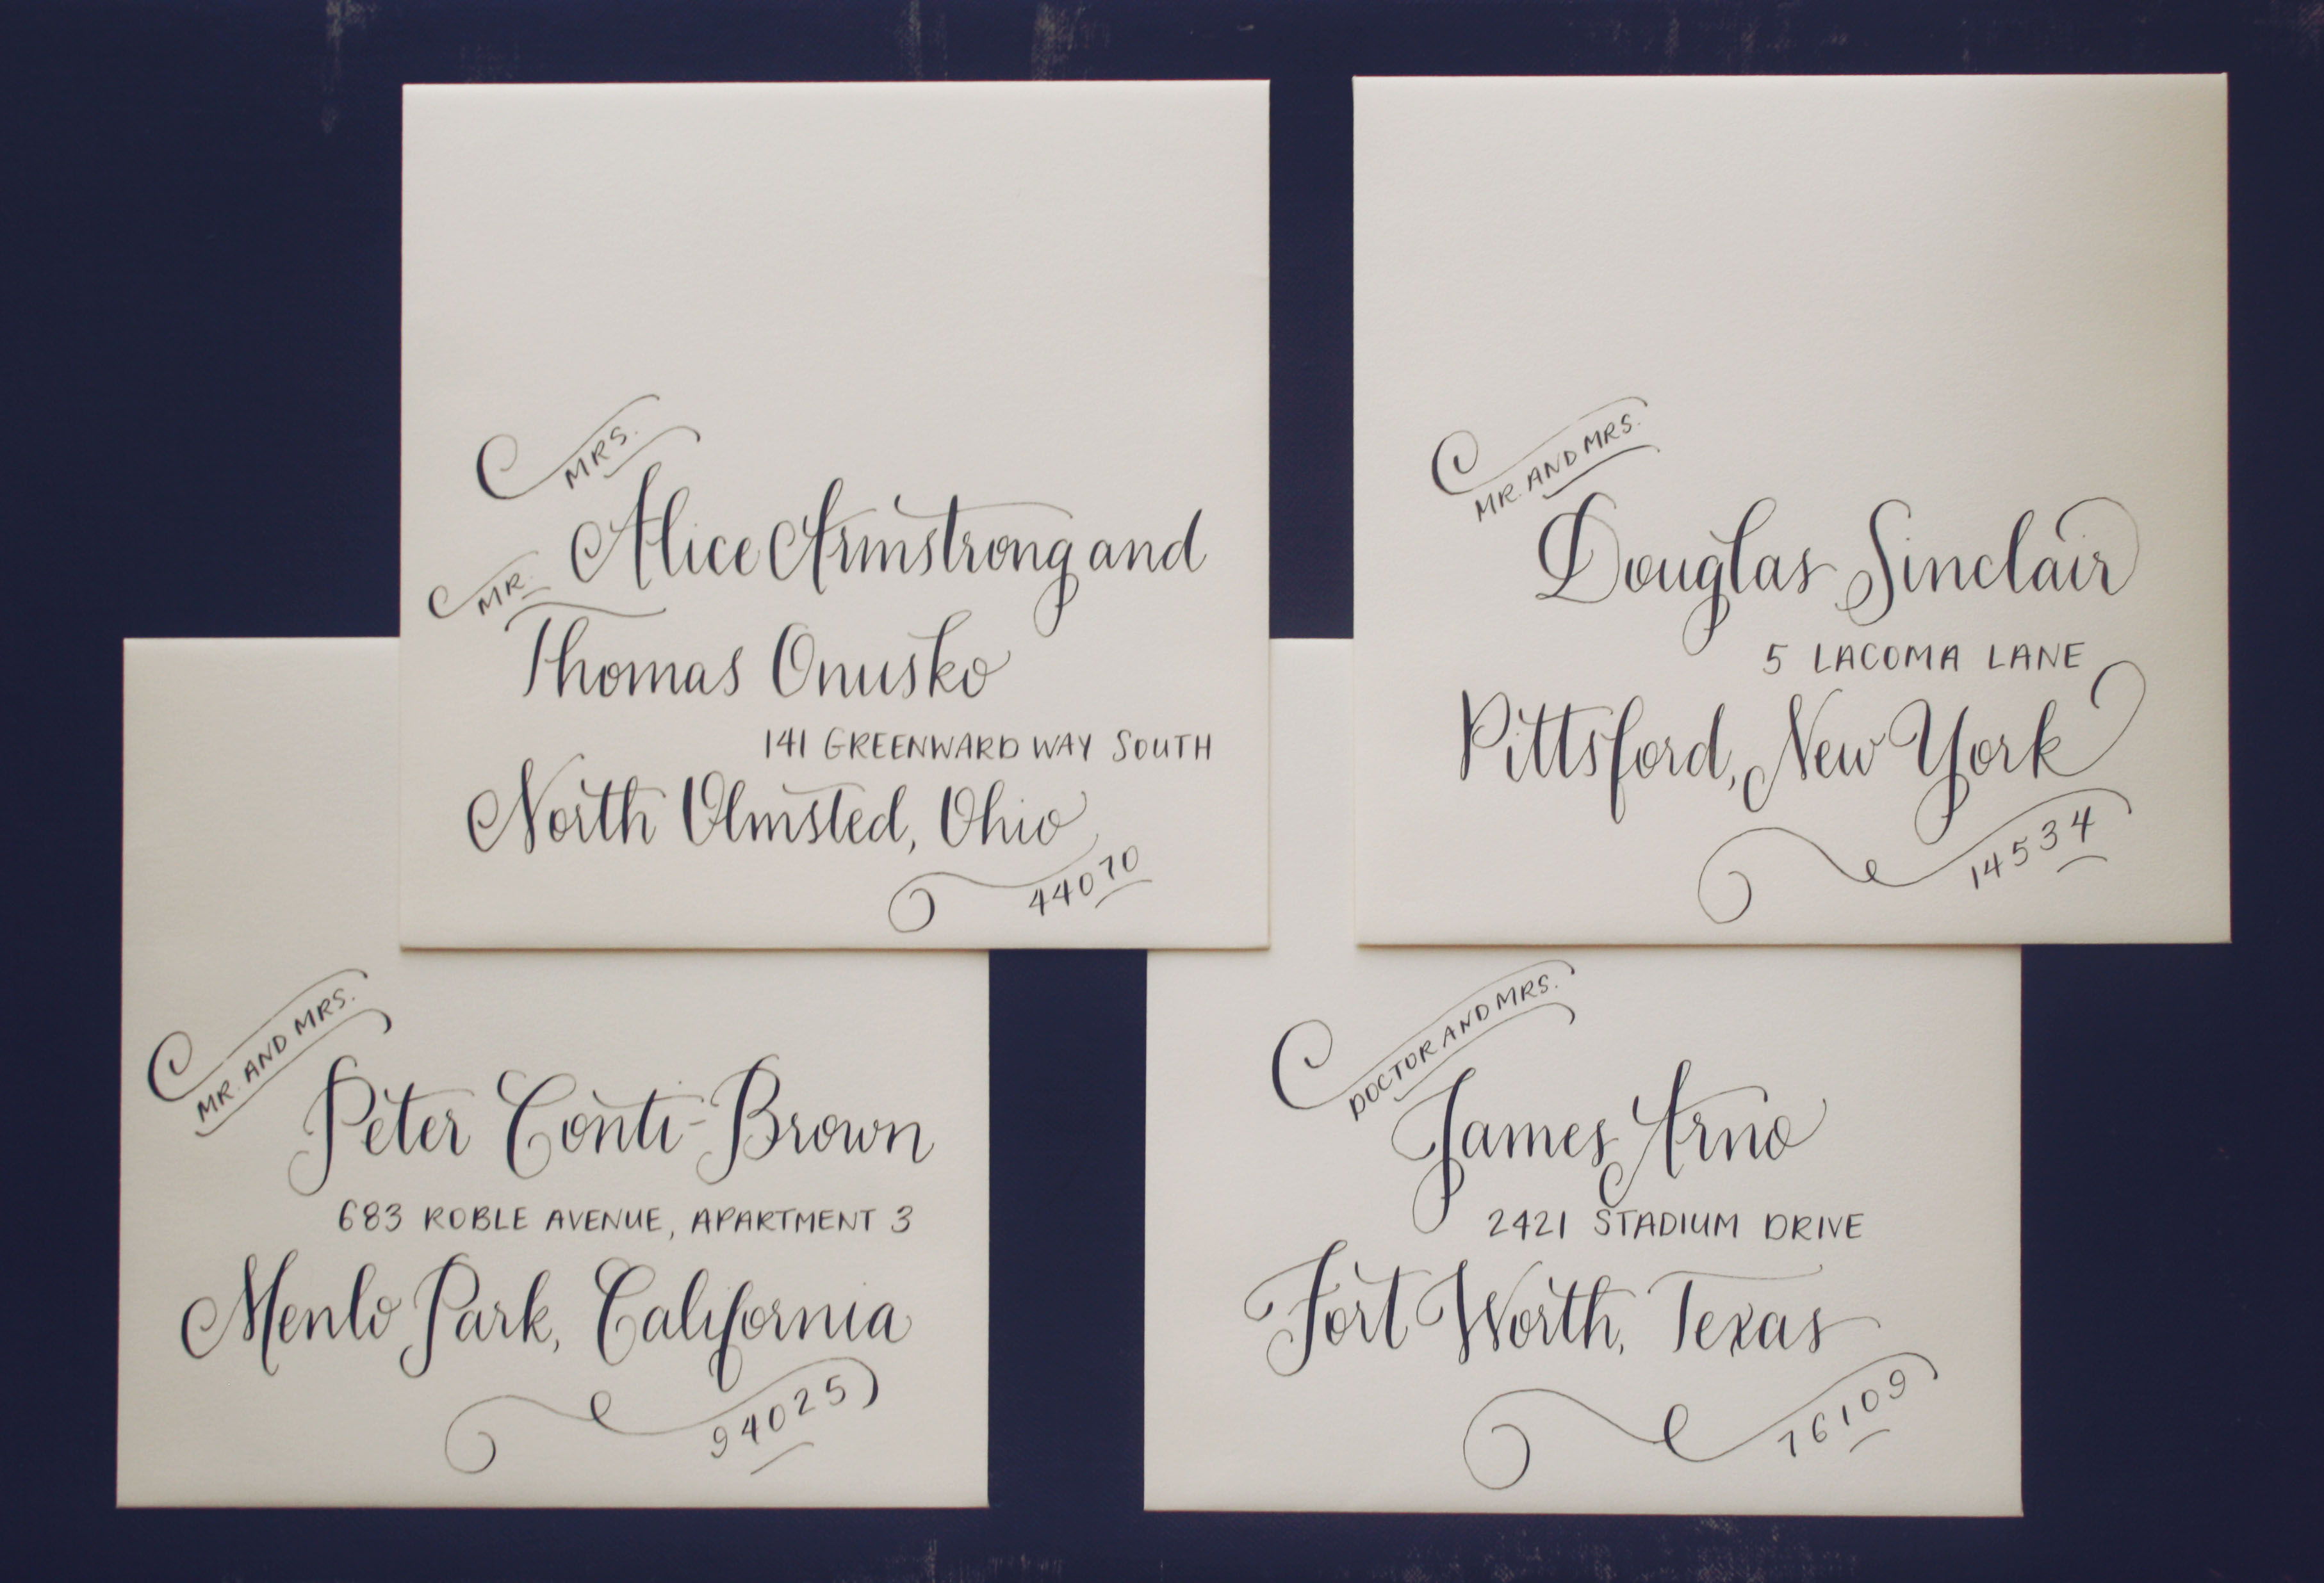 MRS.
Alice Armstrong and
MR.
Thomas Onusko
141 GREENWARD WAY SOUTH
North Olmsted, Ohio
44070
MR. AND MRS.
Douglas Sinclair
5 LACOMA LANE
Pittsford, New York
14534
MR. AND MRS.
Peter Conti-Brown
683 ROBLE AVENUE, APARTMENT 3
Menlo Park, California
94025
DOCTOR AND MRS.
James Arno
2421 STADIUM DRIVE
Fort Worth, Texas
76109